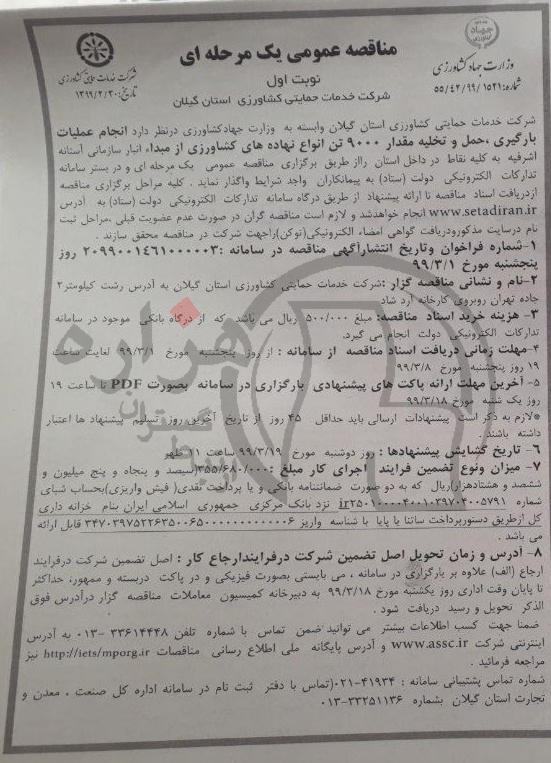 جهاد
وزارت جهاد کشاورزی
شماره: ۵۵/۴۲/۹۹/۱۵۲۱
شرکت خدمات حمایتی کشاورزی
تاریخ: ۱۳۹۹/۲/۳۰
مناقصه عمومی یک مرحله ای
نوبت اول
شرکت خدمات حمایتی کشاورزی استان گیلان
شرکت خدمات حمایتی استان گیلان وابسته به وزارت جهادکشاورزی درنظر دارد انجام عملیات
بارگیری ،حمل و تخلیه مقدار ۹۰۰۰ تن انواع نهاده های کشاورزی از مبداء انبار سازمانی آستانه
اشرفیه به کلیه نقاط در داخل استان رااز طریق برگزاری مناقصه عمومی یک مرحله ای و در بستر سامانه
تدارکات الکترونیکی دولت (ستاد) به پیمانکاران واجد شرایط واگذار نماید . کلیه مراحل برگزاری مناقصه
ازدریافت اسناد مناقصه تا ارائه پیشنهاد از طریق درگاه سامانه تدارکات الکترونیکی دولت (ستاد) به آدرس
www.setadiran.ir انجام خواهدشد و لازم است مناقصه گران در صورت عدم عضویت قبلی ،مراحل ثبت
نام درسایت مذکورودریافت گواهی امضاء الکترونیکی(توکن)راجهت شرکت در مناقصه محقق سازند .
۱-شماره فراخوان وتاریخ انتشارآگهی مناقصه در سامانه :۲۰۹۹۰۰۱۴۶۱۰۰۰۰۰۳ روز
پنجشنبه مورخ ۹۹/۳/۱
۲-نام و نشانی مناقصه گزار :شرکت خدمات حمایتی کشاورزی استان گیلان به آدرس رشت کیلومتر۲
جاده تهران روبروی کارخانه آرد شاد
۳- هزینه خرید اسناد مناقصه: مبلغ ۵۰۰/۰۰۰ ریال می باشد که از درگاه بانکی موجود در سامانه
تدارکات الکترونیکی دولت انجام می گیرد.
۴-مهلت زمانی دریافت اسناد مناقصه از سامانه : از روز پنجشنبه مورخ ۹۹/۳/۱ لغایت ساعت
۱۹ روز پنجشنبه مورخ ۹۹/۳/۸
۵- آخرین مهلت ارائه پاکت های پیشنهادی بارگزاری در سامانه بصورت PDF تا ساعت ۱۹
روز یک شنبه مورخ ۹۹/۳/۱۸
*لازم به ذکر است پیشنهادات ارسالی باید حداقل ۴۵ روز از تاریخ آخرین روز تسلیم پیشنهاد ها اعتبار
داشته باشند .
۶- تاریخ گشایش پیشنهادها : روز دوشنبه مورخ ۹۹/۳/۱۹ ساعت ۱۱ ظهر
۷- میزان ونوع تضمین فرایند اجرای کار مبلغ :۳۵۵/۶۸۰/۰۰۰(سیصد و پنجاه و پنج میلیون و
ششصد و هشتادهزار)ریال که به دو صورت ضمانتنامه بانکی و یا پرداخت نقدی( فیش واریزی)بحساب شبای
شماره ir۲۵۰۱۰۰۰۰۴۰۰۱۰۳۹۷۰۴۰۰۵۷۹۱ نزد بانک مرکزی جمهوری اسلامی ایران بنام خزانه داری
کل ازطریق دستورپرداخت ساتنا یا پایا با شناسه واریز قابل ارائه
می باشد .
۸- آدرس و زمان تحویل اصل تضمین شرکت درفرایندارجاع کار : اصل تضمین شرکت درفرایند
ارجاع (الف) علاوه بر بارگزاری در سامانه ، می بایستی بصورت فیزیکی و در پاکت دربسته و ممهور، حداکثر
تا پایان وقت اداری روز یکشنبه مورخ ۹۹/۳/۱۸ به دبیرخانه کمیسیون معاملات مناقصه گزار درآدرس فوق
الذکر تحویل و رسید دریافت شود .
ضمنا جهت کسب اطلاعات بیشتر می توانید ضمن تماس با شماره تلفن ۳۳۶۱۴۴۴۸-۰۱۳ به آدرس
اینترنتی شرکت www.assc.ir و آدرس پایگاه ملی اطلاع رسانی مناقصات http://iets/mporg.ir نیز
مراجعه فرمائید .
شماره تماس پشتیبانی سامانه : ۴۱۹۳۴-۰۲۱(تماس با دفتر ثبت نام در سامانه اداره کل صنعت ، معدن و
تجارت استان گیلان بشماره ۳۳۲۵۱۱۳۶-۰۱۳
هزاره